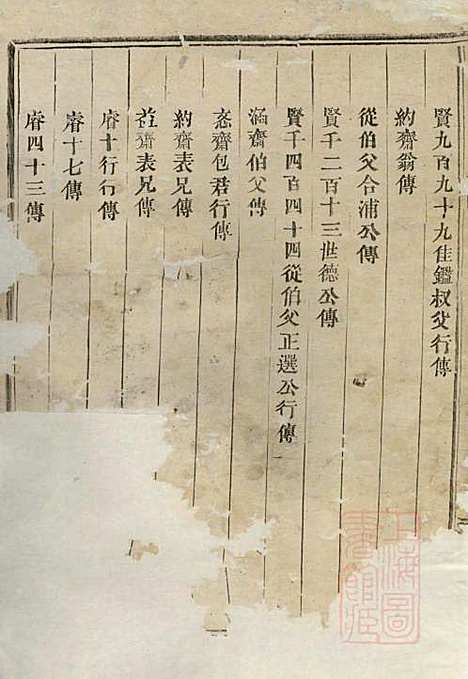 賢九百九十九佳鑑叔父行傳
約齋翁傳
從伯父合浦公傳
賢千二百十三世德公傳
賢千四百四十四從伯父正選公行傳
涵齋伯父傳
恣齋包君行傳
約齋表兄傳
莊齋表兄傳
睿十行行傳
睿十七傳
睿四十三傳
上海圖
書館藏